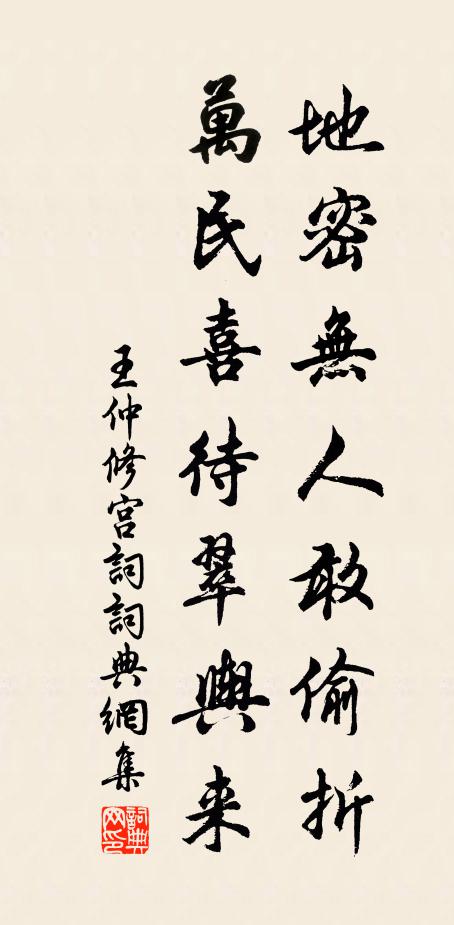 地密無人敢偷折
萬民喜待翠輿来
王仲修宮詞詞典網集
詞典网印